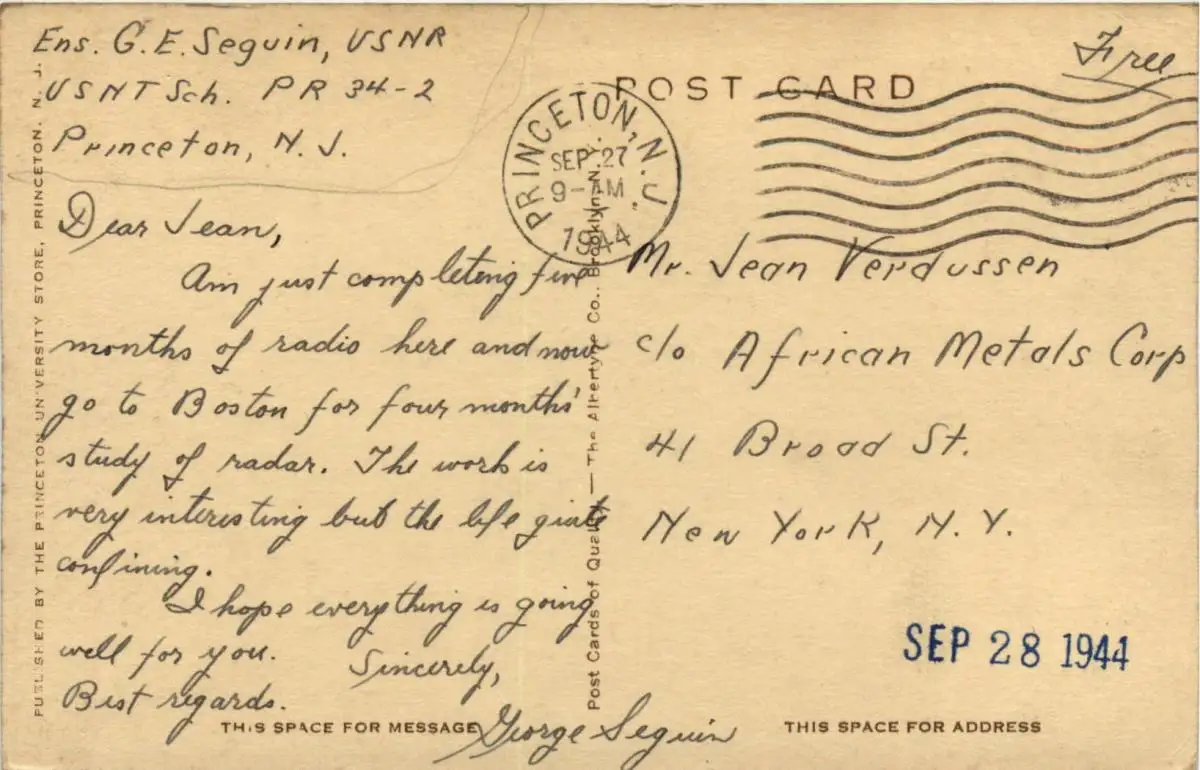 Ens. G. E. Seguin, USNR
USNTSch. PR 34-2
Princeton, N. J.
Free
POST CARD
PRINCETON, N.J.
SEP 27
9-AM
1944
Dear Jean,
Am just completing five
months of radio here and now
go to Boston for four months'
study of radar. The work is
very interesting but the life quite
confining.
I hope everything is going
well for you.
Sincerely,
Best regards.
George Seguin
Mr. Jean Verdussen
c/o African Metals Corp
41 Broad St.
New York, N.Y.
SEP 28 1944
THIS SPACE FOR MESSAGE
THIS SPACE FOR ADDRESS
PUBLISHED BY THE PRINCETON UNIVERSITY STORE, PRINCETON, N. J.
Post Cards of Quality — The Albertype Co., Brooklyn, N. Y.